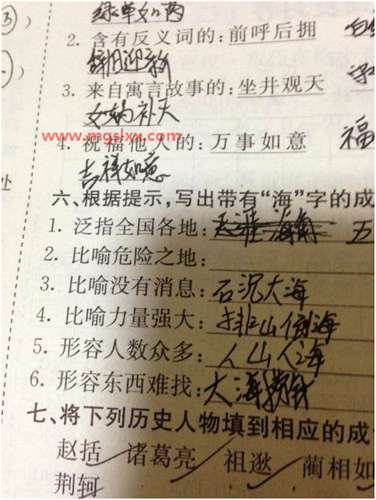 2. 含有反义词的: 前呼后拥
辞旧迎新
3. 来自寓言故事的: 坐井观天
女娲补天
www.mgslxx.com
4. 祝福他人的: 万事如意 福
吉祥如意
处
六、根据提示,写出带有“海”字的成
1. 泛指全国各地: 天涯海角 五
2. 比喻危险之地:
3. 比喻没有消息: 石沉大海
4. 比喻力量强大: 排山倒海
5. 形容人数众多: 人山人海
6. 形容东西难找: 大海捞针
七、将下列历史人物填到相应的成
赵括 诸葛亮 祖逖 蔺相如
荆轲